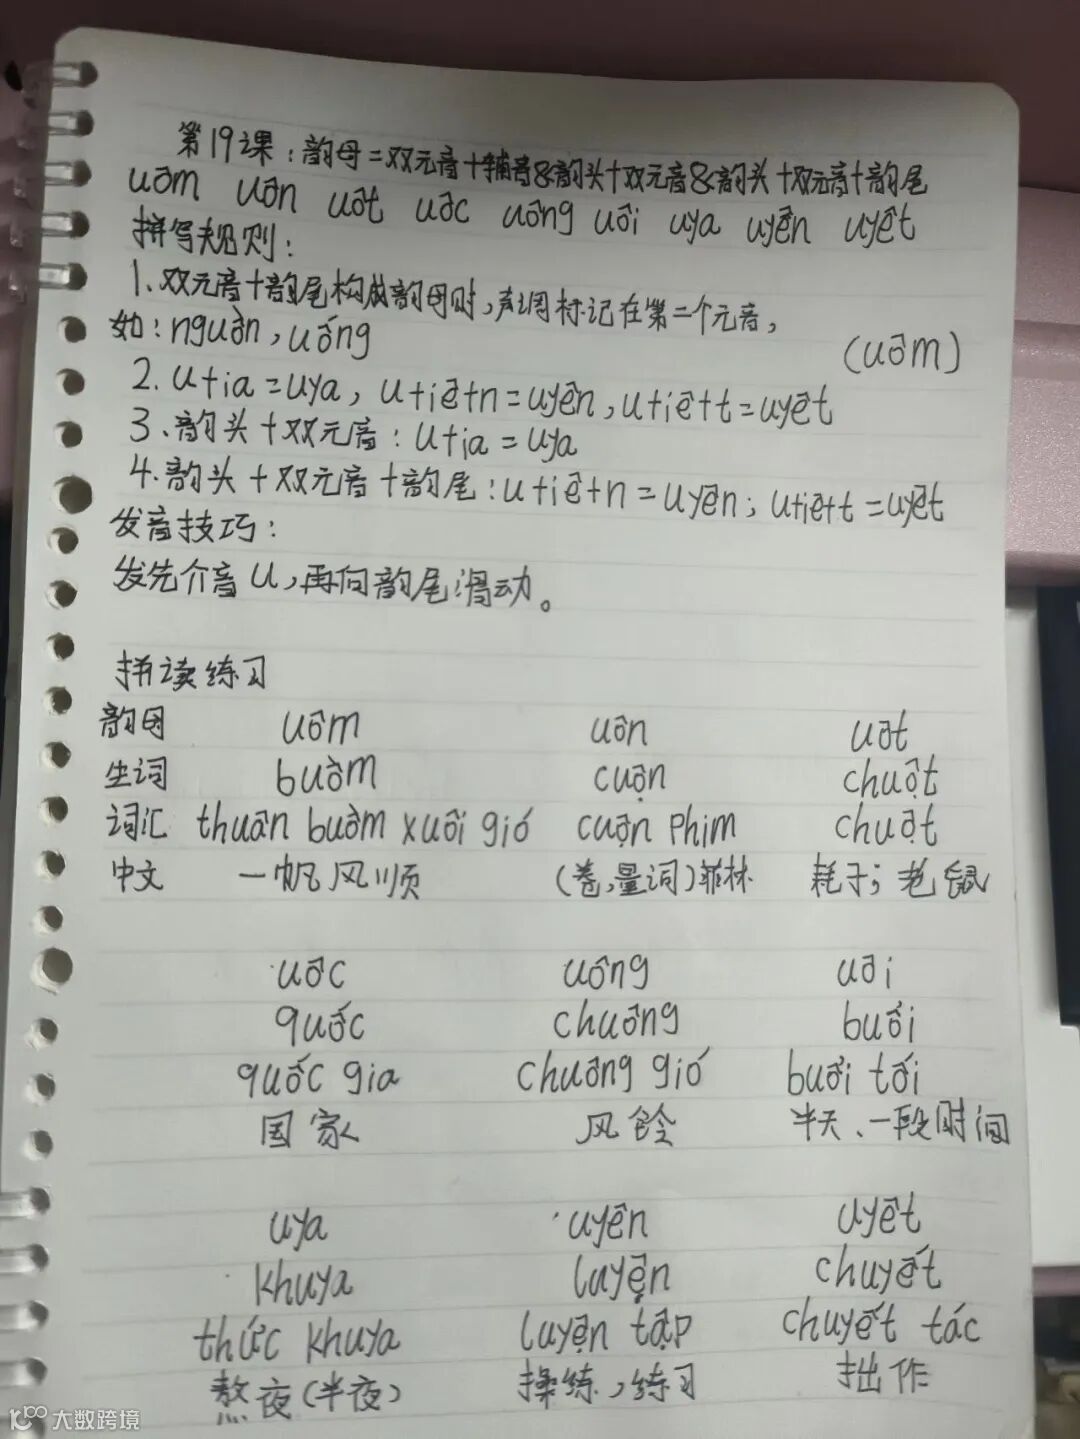 第19课：韵母=双元音+辅音&韵头+双元音&韵头+双元音+韵尾
uôm uôn uôt uôc uông uôi uya uyên uyêt
拼写规则：
1、双元音+韵尾构成韵母时，声调标记在第二个元音，
如：nguồn，uống (uôm)
2. u+ia=uya，u+iê+n=uyên，u+iê+t=uyêt
3、韵头+双元音：u+ia=uya
4.韵头+双元音+韵尾：u+iê+n=uyên；u+iê+t=uyêt
发音技巧：
发先介音u，再向韵尾滑动。
拼读练习
韵母 uôm uôn uôt
生词 buồm cuộn chuột
词汇 thuân buồm xuôi gió cuộn phim chuột
中文 一帆风顺 (卷，量词)菲林 耗子；老鼠
uôc uông uôi
quốc chuông buổi
quốc gia chuông gió buổi tối
国家 风铃 半天、一段时间
uya uyên uyêt
khuya luyện chuyết
thức khuya luyện tập chuyết tác
熬夜(半夜) 操练，练习 拙作
大数跨境